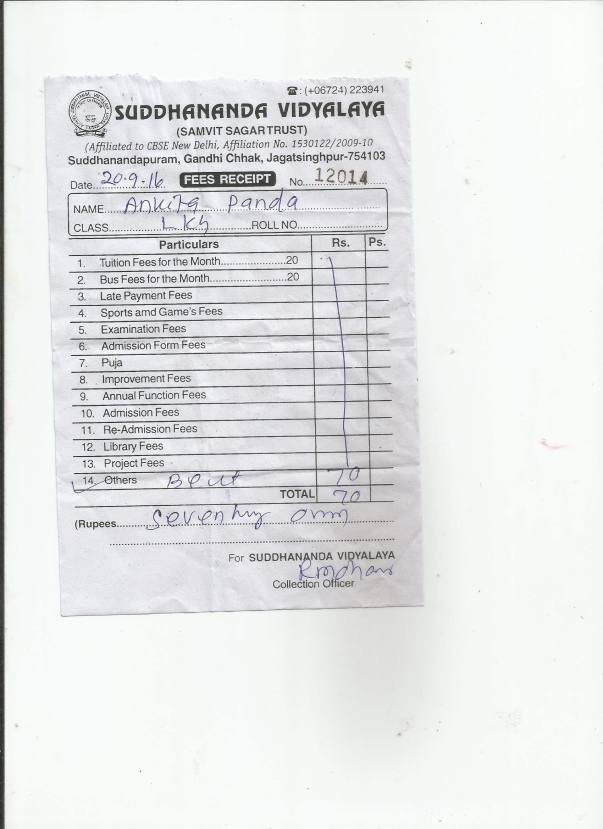 ☎: (+06724) 223941
SUDDHANANDA VIDYALAYA
(SAMVIT SAGAR TRUST)
(Affiliated to CBSE New Delhi, Affiliation No. 1530122/2009-10
Suddhanandapuram, Gandhi Chhak, Jagatsinghpur-754103
Date...20.9.16 FEES RECEIPT No...12014
NAME...Ankita Panda
CLASS...LKG...ROLL NO...
Particulars Rs. Ps.
1. Tuition Fees for the Month...20
2. Bus Fees for the Month...20
3. Late Payment Fees
4. Sports amd Game's Fees
5. Examination Fees
6. Admission Form Fees
7. Puja
8. Improvement Fees
9. Annual Function Fees
10. Admission Fees
11. Re-Admission Fees
12. Library Fees
13. Project Fees
14. Others Belt 70
TOTAL 70
(Rupees...Seventy only
For SUDDHANANDA VIDYALAYA
Collection Officer